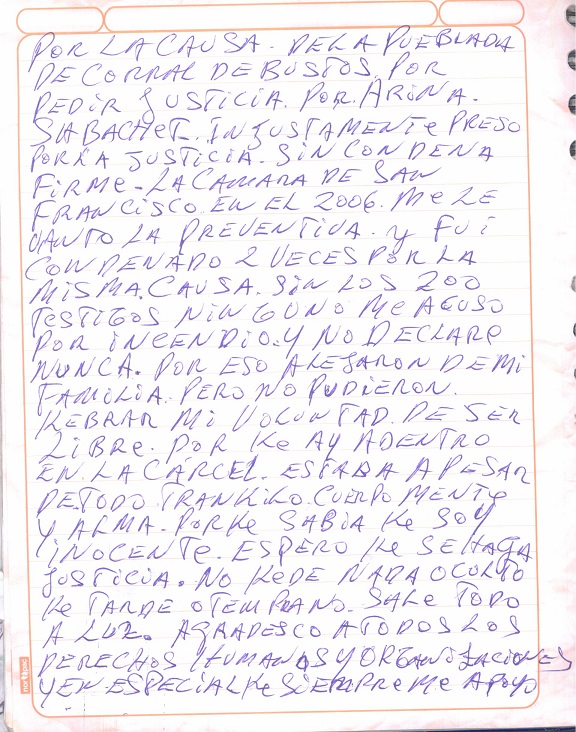 POR LA CAUSA. DE LA PUEBLADA
DE CORRAL DE BUSTOS. POR
PEDIR JUSTICIA. POR. ARINA.
SABACHET. INJUSTAMENTE PRESO
POR LA JUSTICIA. SIN CONDENA
FIRME - LA CAMARA DE SAN
FRANCISCO. EN EL 2006. ME LE
VANTO LA PREVENTIVA. y FUi
CONDENADO 2 VECES POR LA
MISMA. CAUSA. SiN LOS 200
TESTIGOS NINGUNO ME ACUSO
POR iNCENDIO. Y NO DECLARE
NUNCA. POR ESO ALEJARON DE Mi
FAMILIA. PERO NO PUDIERON.
KEBRAR Mi VOLUNTAD. DE SER
LIBRE. POR KE AY ADENTRO
EN. LA CÁRCEL. ESTABA A PESAR
DE TODO. TRANKILO. CUERPO MENTE
Y ALMA. PORKE SABIA KE SOY
INOCENTE. ESPERO KE SE HAGA
JUSTICIA. NO KEDE NADA OCULTO
KE TARDE O TEMPRANO. SALE TODO
A LUZ. AGRADESCO A TODOS LOS
DERECHOS HUMANOS Y ORGANISACIONES
Y EN ESPECIAL KE SIEMPRE ME APOYO